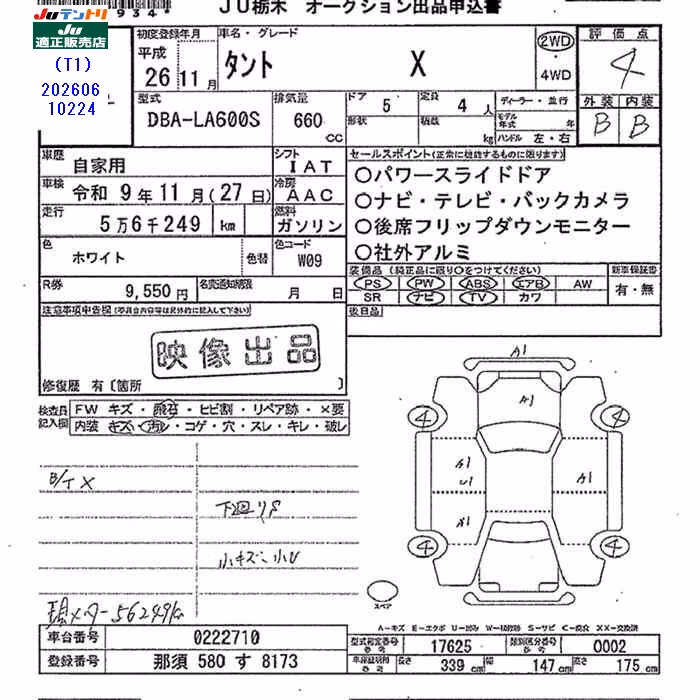 JU栃木 オークション出品申込書
JUテントリ
934
JU 適正販売店
(T1)
202606
10224
初度登録年月
平成
26 11月
車名・グレード
タント X
2WD
・
4WD
評価点
4
外装 内装
B B
型式
DBA-LA600S
排気量
660 cc
ドア 5
定員 4 人
形状
積載 kg
ディーラー・並行
モデル年式 年
ハンドル 左・右
車歴 自家用
シフト IAT
車検 令和 9年11月(27日)
冷房 AAC
走行 5万6千249 km
燃料 ガソリン
色 ホワイト 色替
色コード W09
R券 9,550円
名変通知期限 月 日
セールスポイント(正常に機能するものに限ります)
○パワースライドドア
○ナビ・テレビ・バックカメラ
○後席フリップダウンモニター
○社外アルミ
装備品(純正品に限り○をつけてください)
PS PW ABS エアB AW
SR ナビ TV カワ
新車保証書
有・無
後日品
注意事項申告欄(不具合内容等は具体的に記入して下さい)
映像出品
修復歴 有〔箇所 〕
検査員記入欄
FW キズ・飛石・ヒビ割・リペア跡・×要
内装 キズ・汚レ・コゲ・穴・スレ・キレ・破レ
B/T X
下廻りS
小キズ、小U
現メーター56249km
A1
A1
4 4
A1 A1
U1
A1
4 4
スペア
A-キズ E-エクボ U-凹み W-補修跡 S-サビ C-腐食 XX-交換済
車台番号 0222710
登録番号 那須 580 す 8173
型式指定番号 参考 17625
類別区分番号 参考 0002
車庫証明用 参考 長さ 339 幅 147 高さ 175 cm